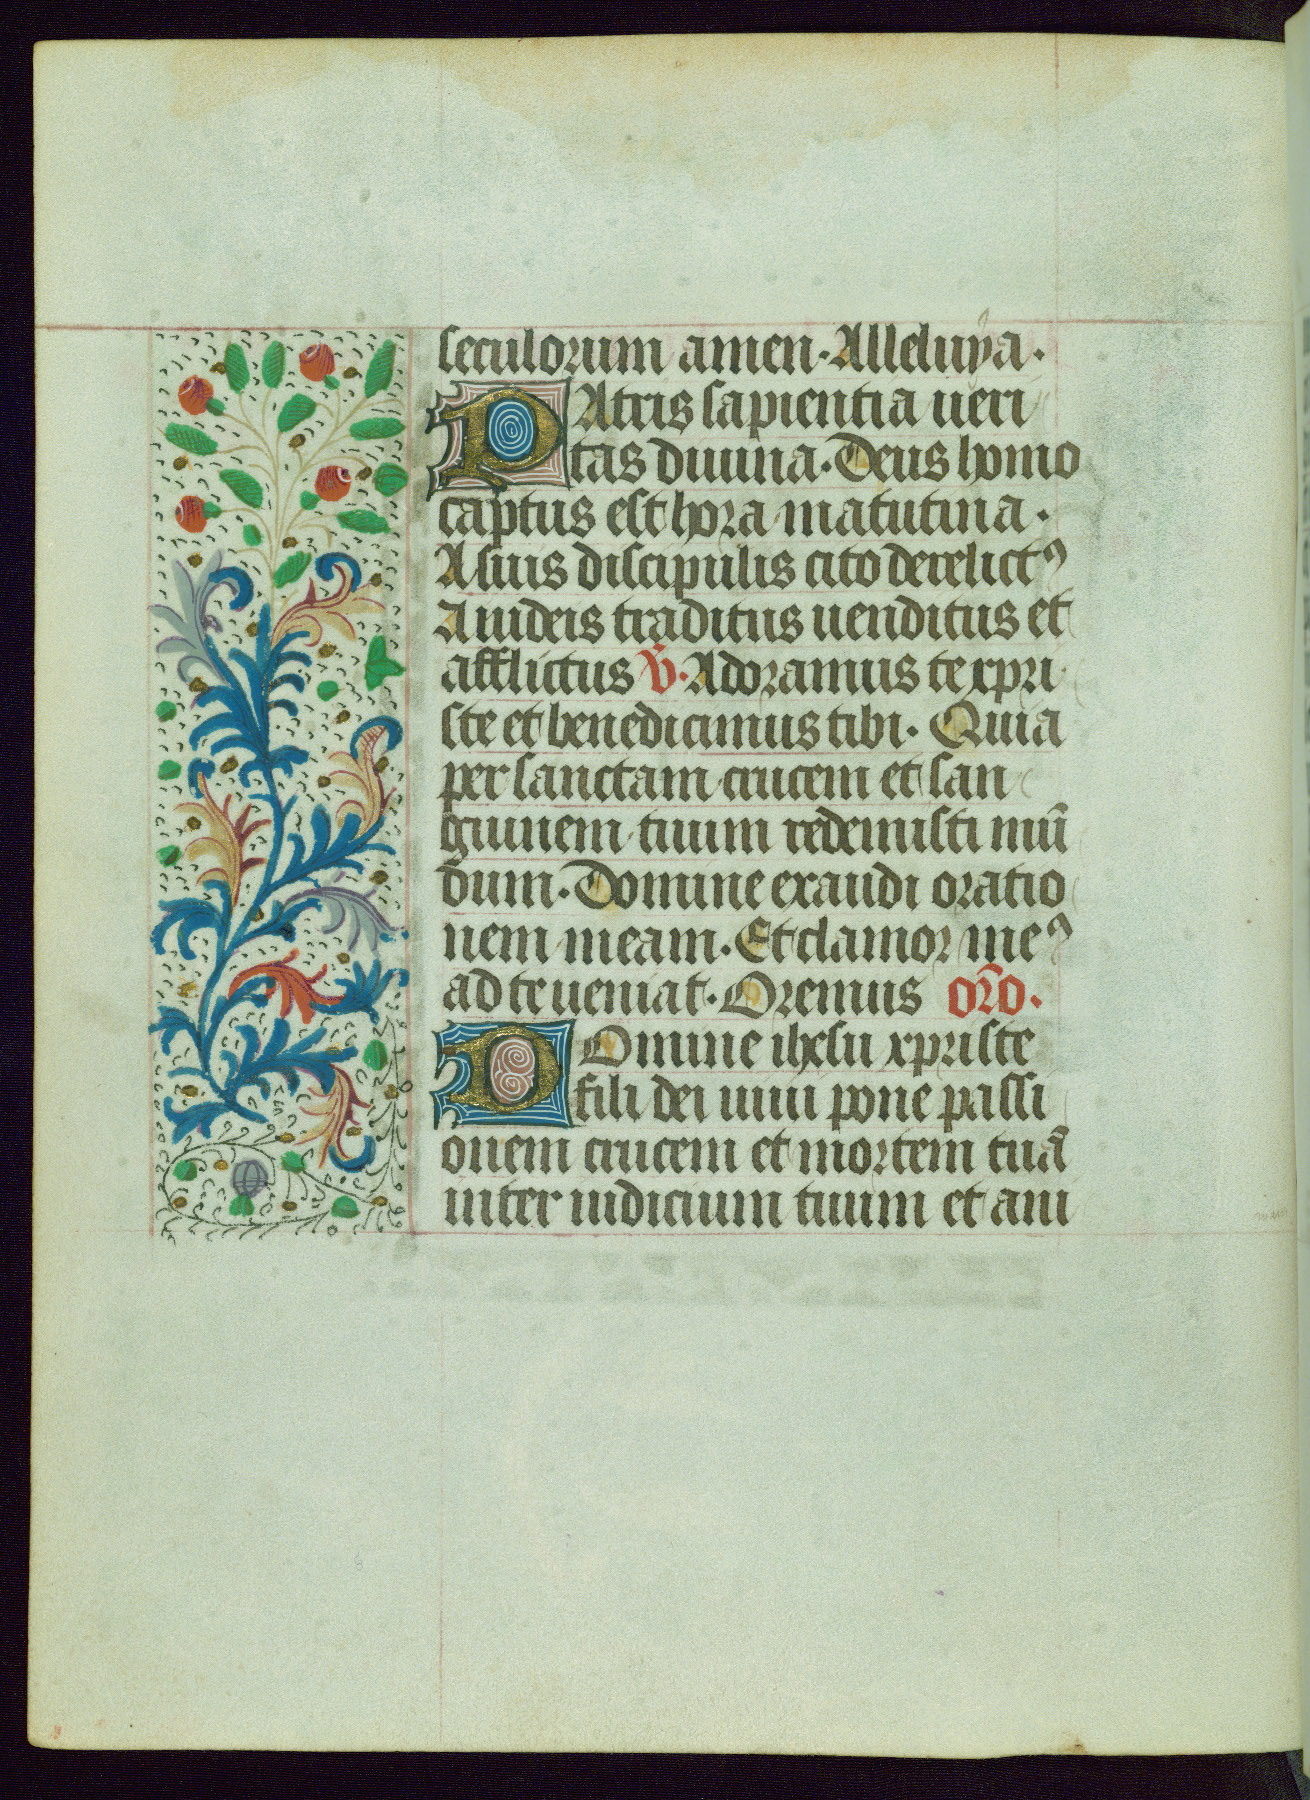 seculorum amen. Alleluya.
PAtris sapientia ueri
tas diuina. Deus homo
captus est hora matutina.
A suis discipulis cito derelictꝰ
A iudeis traditus uenditus et
afflictus V̄. Adoramus te xpri
ste et benedicimus tibi. Quia
per sanctam crucem et san
guinem tuum redemisti mū
dum. Domine exaudi oratio
nem meam. Et clamor meꝰ
ad te ueniat. Oremus or̄o.
DOmine ihesu xpriste
fili dei uiui pone passi
onem crucem et mortem tuā
inter iudicium tuum et ani